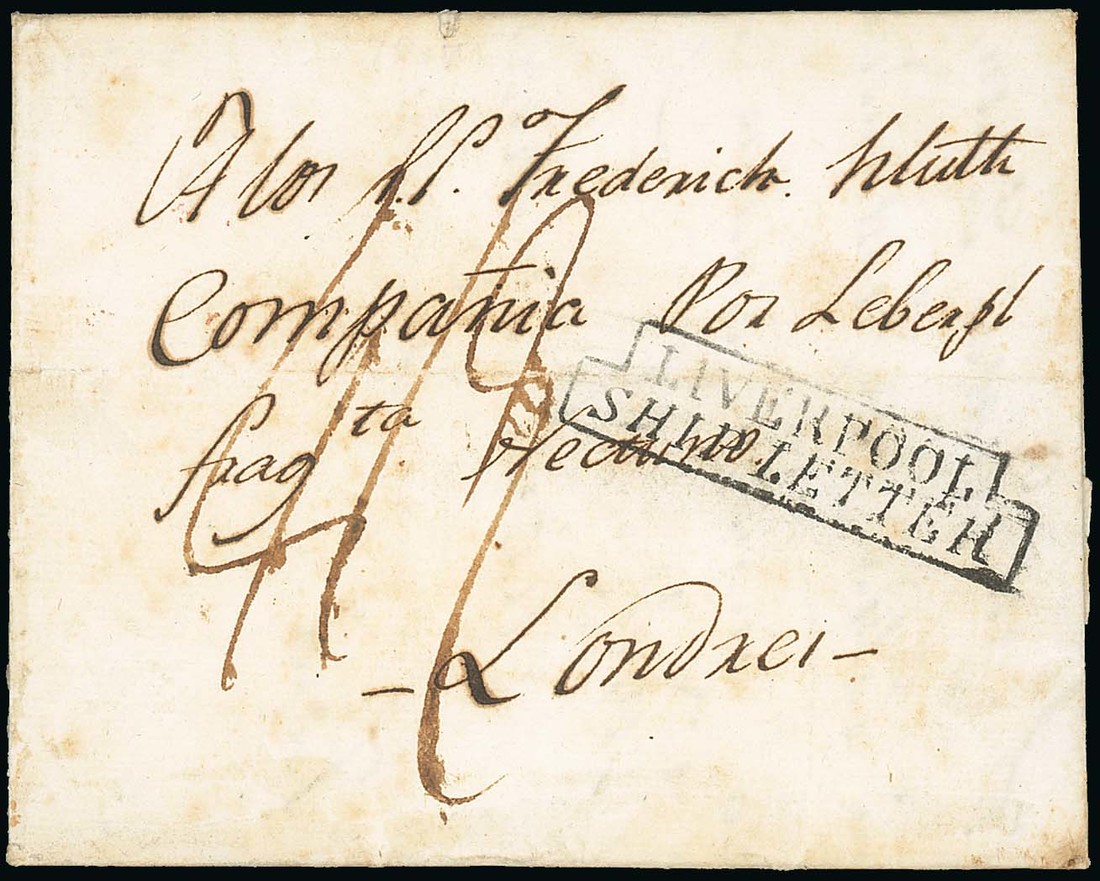 A los S.S. Frederick Hhuth
Compañia Por Leberpl
frag ta
LIVERPOOL
SHIP LETTER
- Londres -